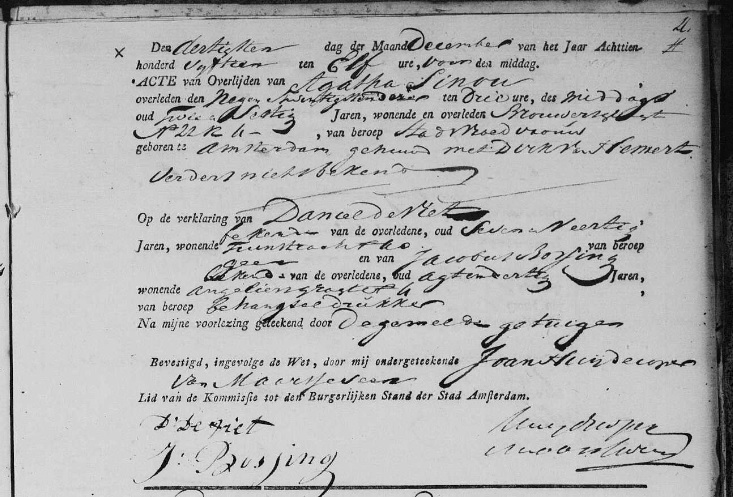 Den dertigsten dag der Maand December van het Jaar Achttien
honderd vyftien ten Elf ure, voor den middag.
ACTE van Overlijden van Agatha Sinou
overleden den Negen en twintigsten dezer ten Drie ure, des middags
oud Twee Jaren, wonende en overleden Brouwersgragt
N 22 K 4 , van beroep Stadsvroedvrouw
geboren te Amsterdam gehuwd met Dirk van Hemert
verders niets bekend
Op de verklaring van Daniel de Niet
bekende van de overledene, oud Seven Neertig
Jaren, wonende van beroep
geen en van Jacobus Bossing
bekende van de overledene, oud agt en dertig Jaren,
wonende angeliersgragt
van beroep behangseldrukker
Na mijne voorlezing geteekend door De gemelde getuigen
Bevestigd, ingevolge de Wet, door mij ondergeteekende Joan Huydecoper
van Maarsseveen
Lid van de Kommissie tot den Burgerlijken Stand der Stad Amsterdam.
D. De Niet Huydecoper
J. Bossing Maarsseveen